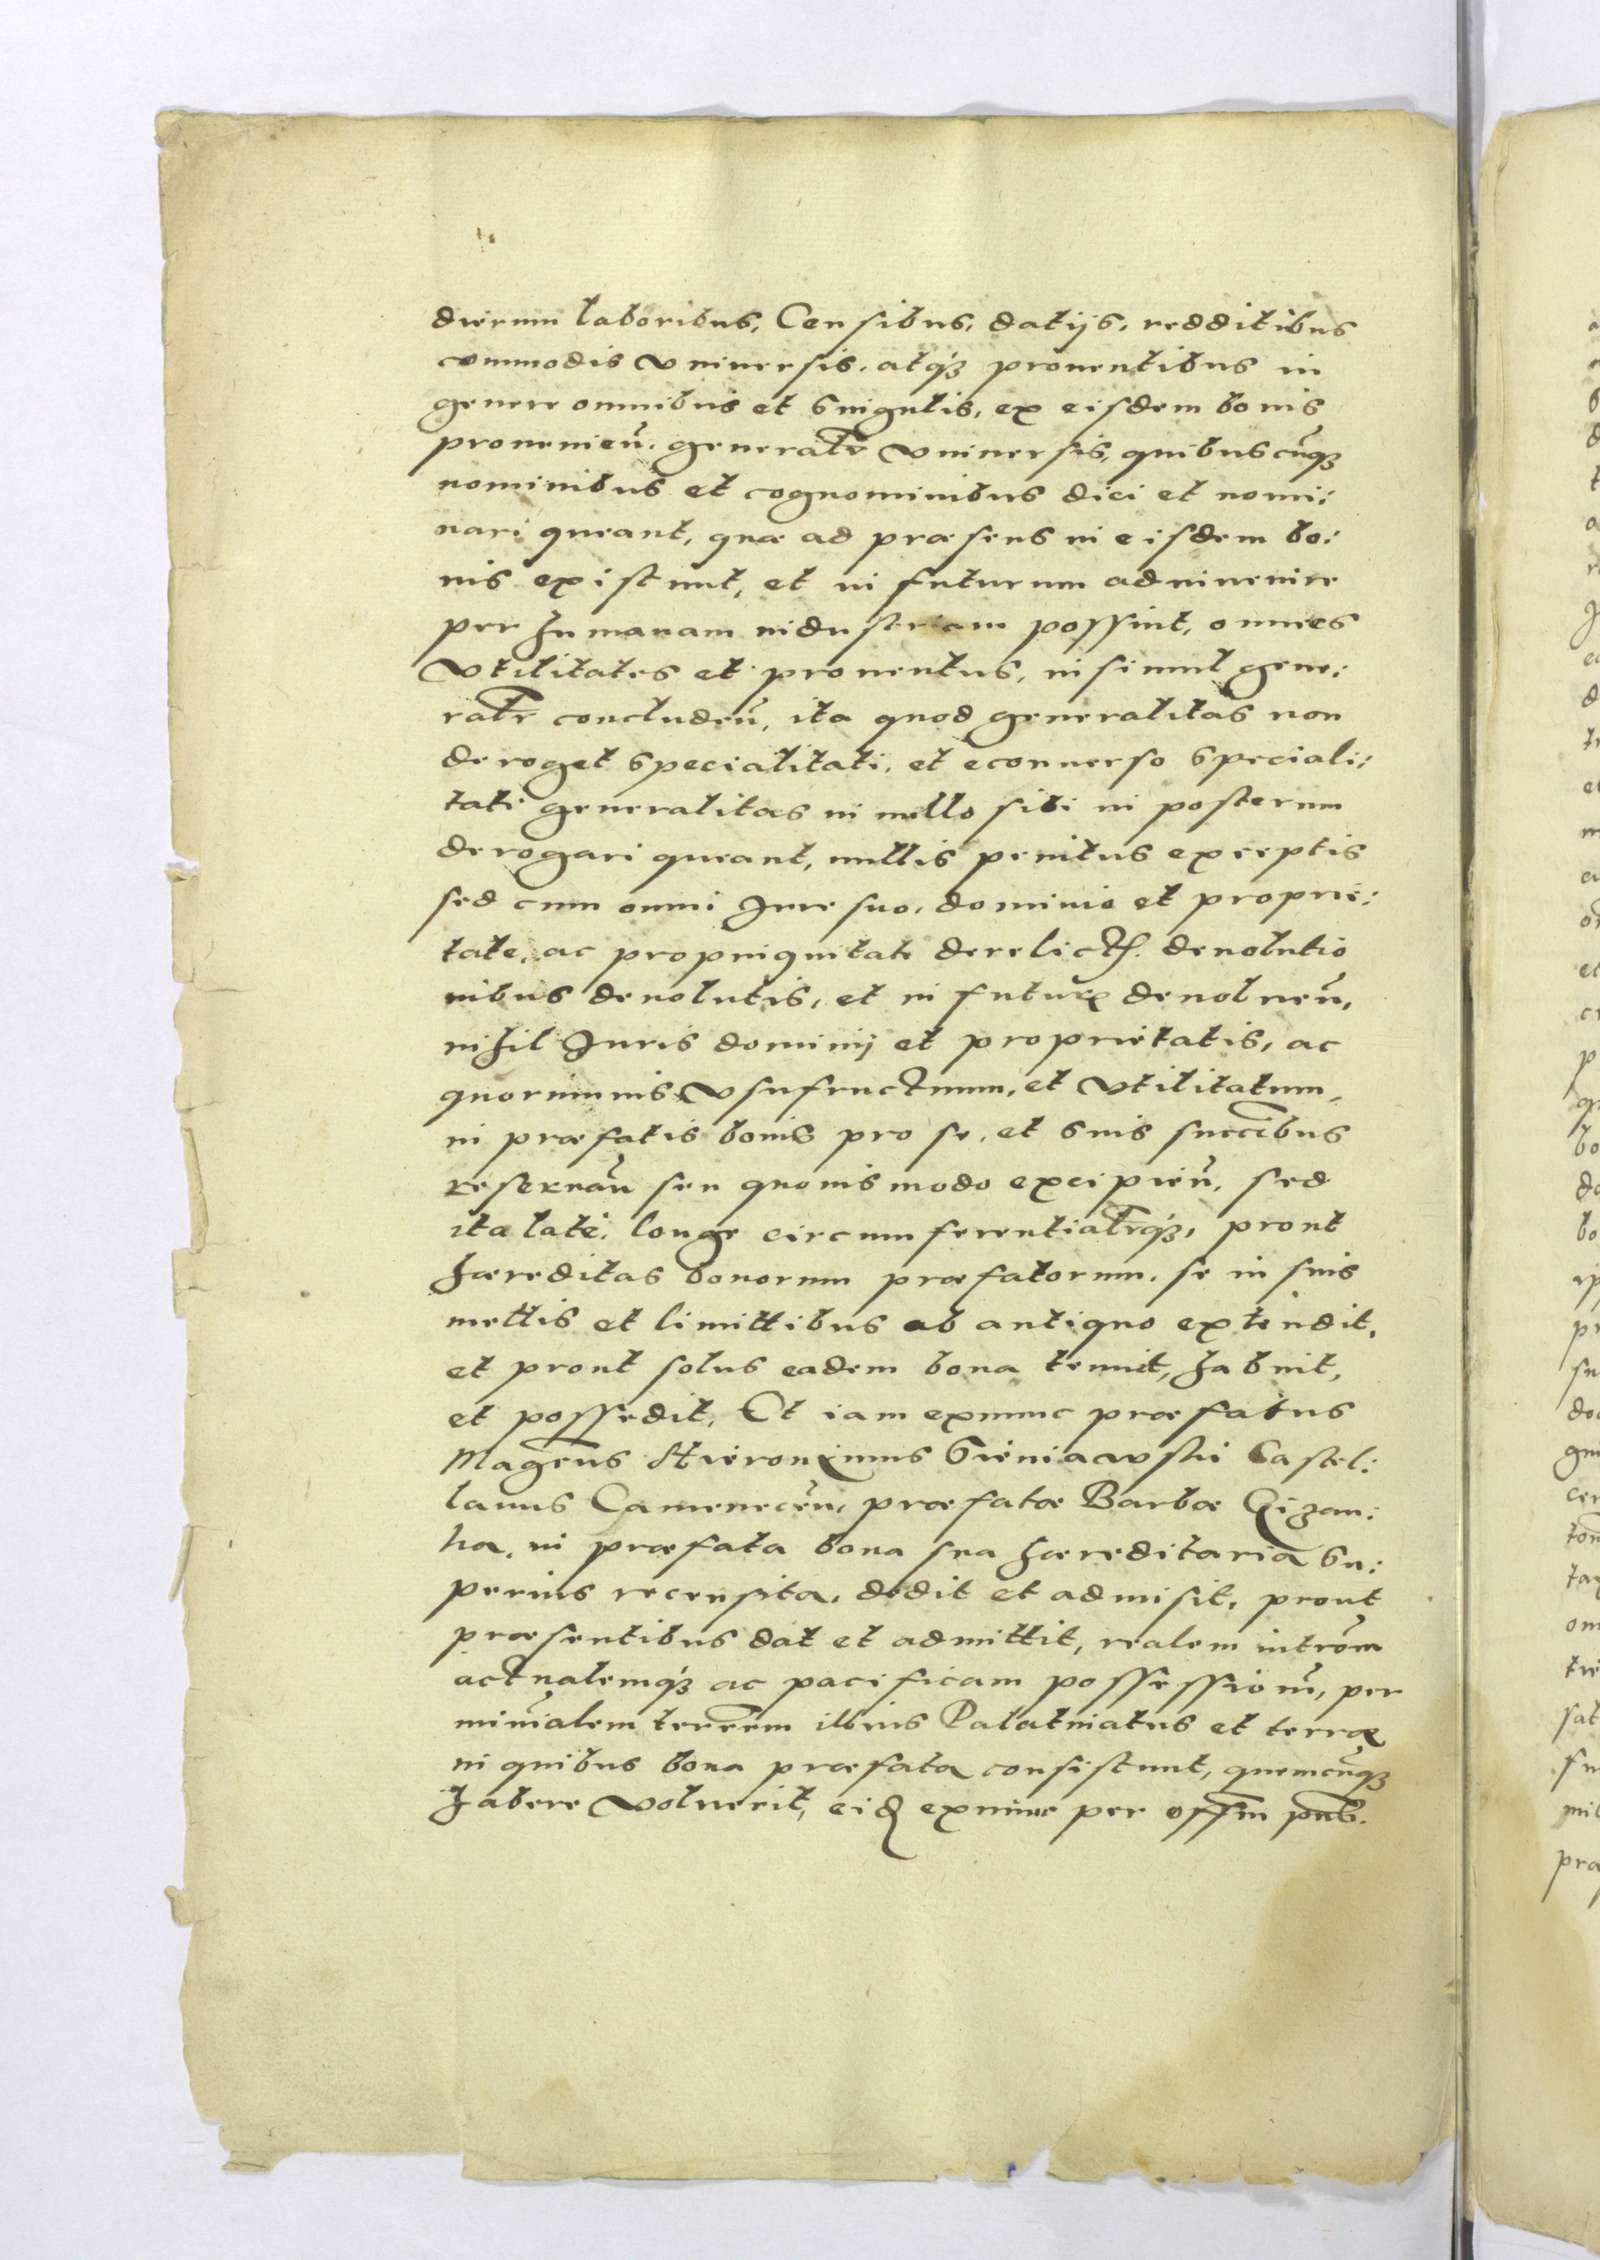 dierum laboribus, Censibus, datijs, redditibus
commodis vniuersis, atq₃ prouentibus in
genere omnibus et singulis, ex eisdem bonis
prouenieñ. generalr̄ vniuersis, quibuscūq₃
nominibus et cognominibus dici et nomi:
nari queant, quæ ad præsens in eisdem bo:
nis existunt, et in futurum adinuenire
per humanam industriam possint, omnes
vtilitates et prouentus, in simul gene:
ralr̄ concludeñ, ita quod generalitas non
deroget specialitati, et econuerso speciali:
tati generalitas in nullo sibi in posterum
derogari queant, nullis penitus exceptis
sed cum omni Iure suo, dominio et proprie:
tate, ac propinquitate derelict. deuolutio
nibus deuolutis, et in futurū deuolueñ,
nihil Iuris dominij et proprietatis, ac
quoruimuis vsufructuum, et vtilitatum,
in præfatis bonis pro se, et suis succībus
reseruañ seu quouismodo excipieñ, sed
ita late, longe circumferentialr̄q₃, prout
hæreditas bonorum præfatorum, se in suis
mettis et limittibus ab antiquo extendit,
et prout solus eadem bona tenuit, habuit,
et possedit, Et iam exnunc præfatus
Magcus Hieronymus Sieniawski Castel:
lanus Camenecēn, præfatæ Barbæ Cizow:
ska, in præfata bona sua hæreditaria su:
perius recensita, dedit et admisit, prout
præsentibus dat et admittit, realem intrōm
actualemq₃ ac pacificam possessionē, per
minr̄ialem terrēm illius Palatinatus et terræ
in quibus bona præfata consistunt, quemcūq₃
habere voluerit, eid exnunc per offm pnt.
a
d
t
a
J
d
et
m
a
et
p
bo
da
bo
ip
pr
su
doc
cer
tom
tax
om
tre
sat
fu
mil
præ